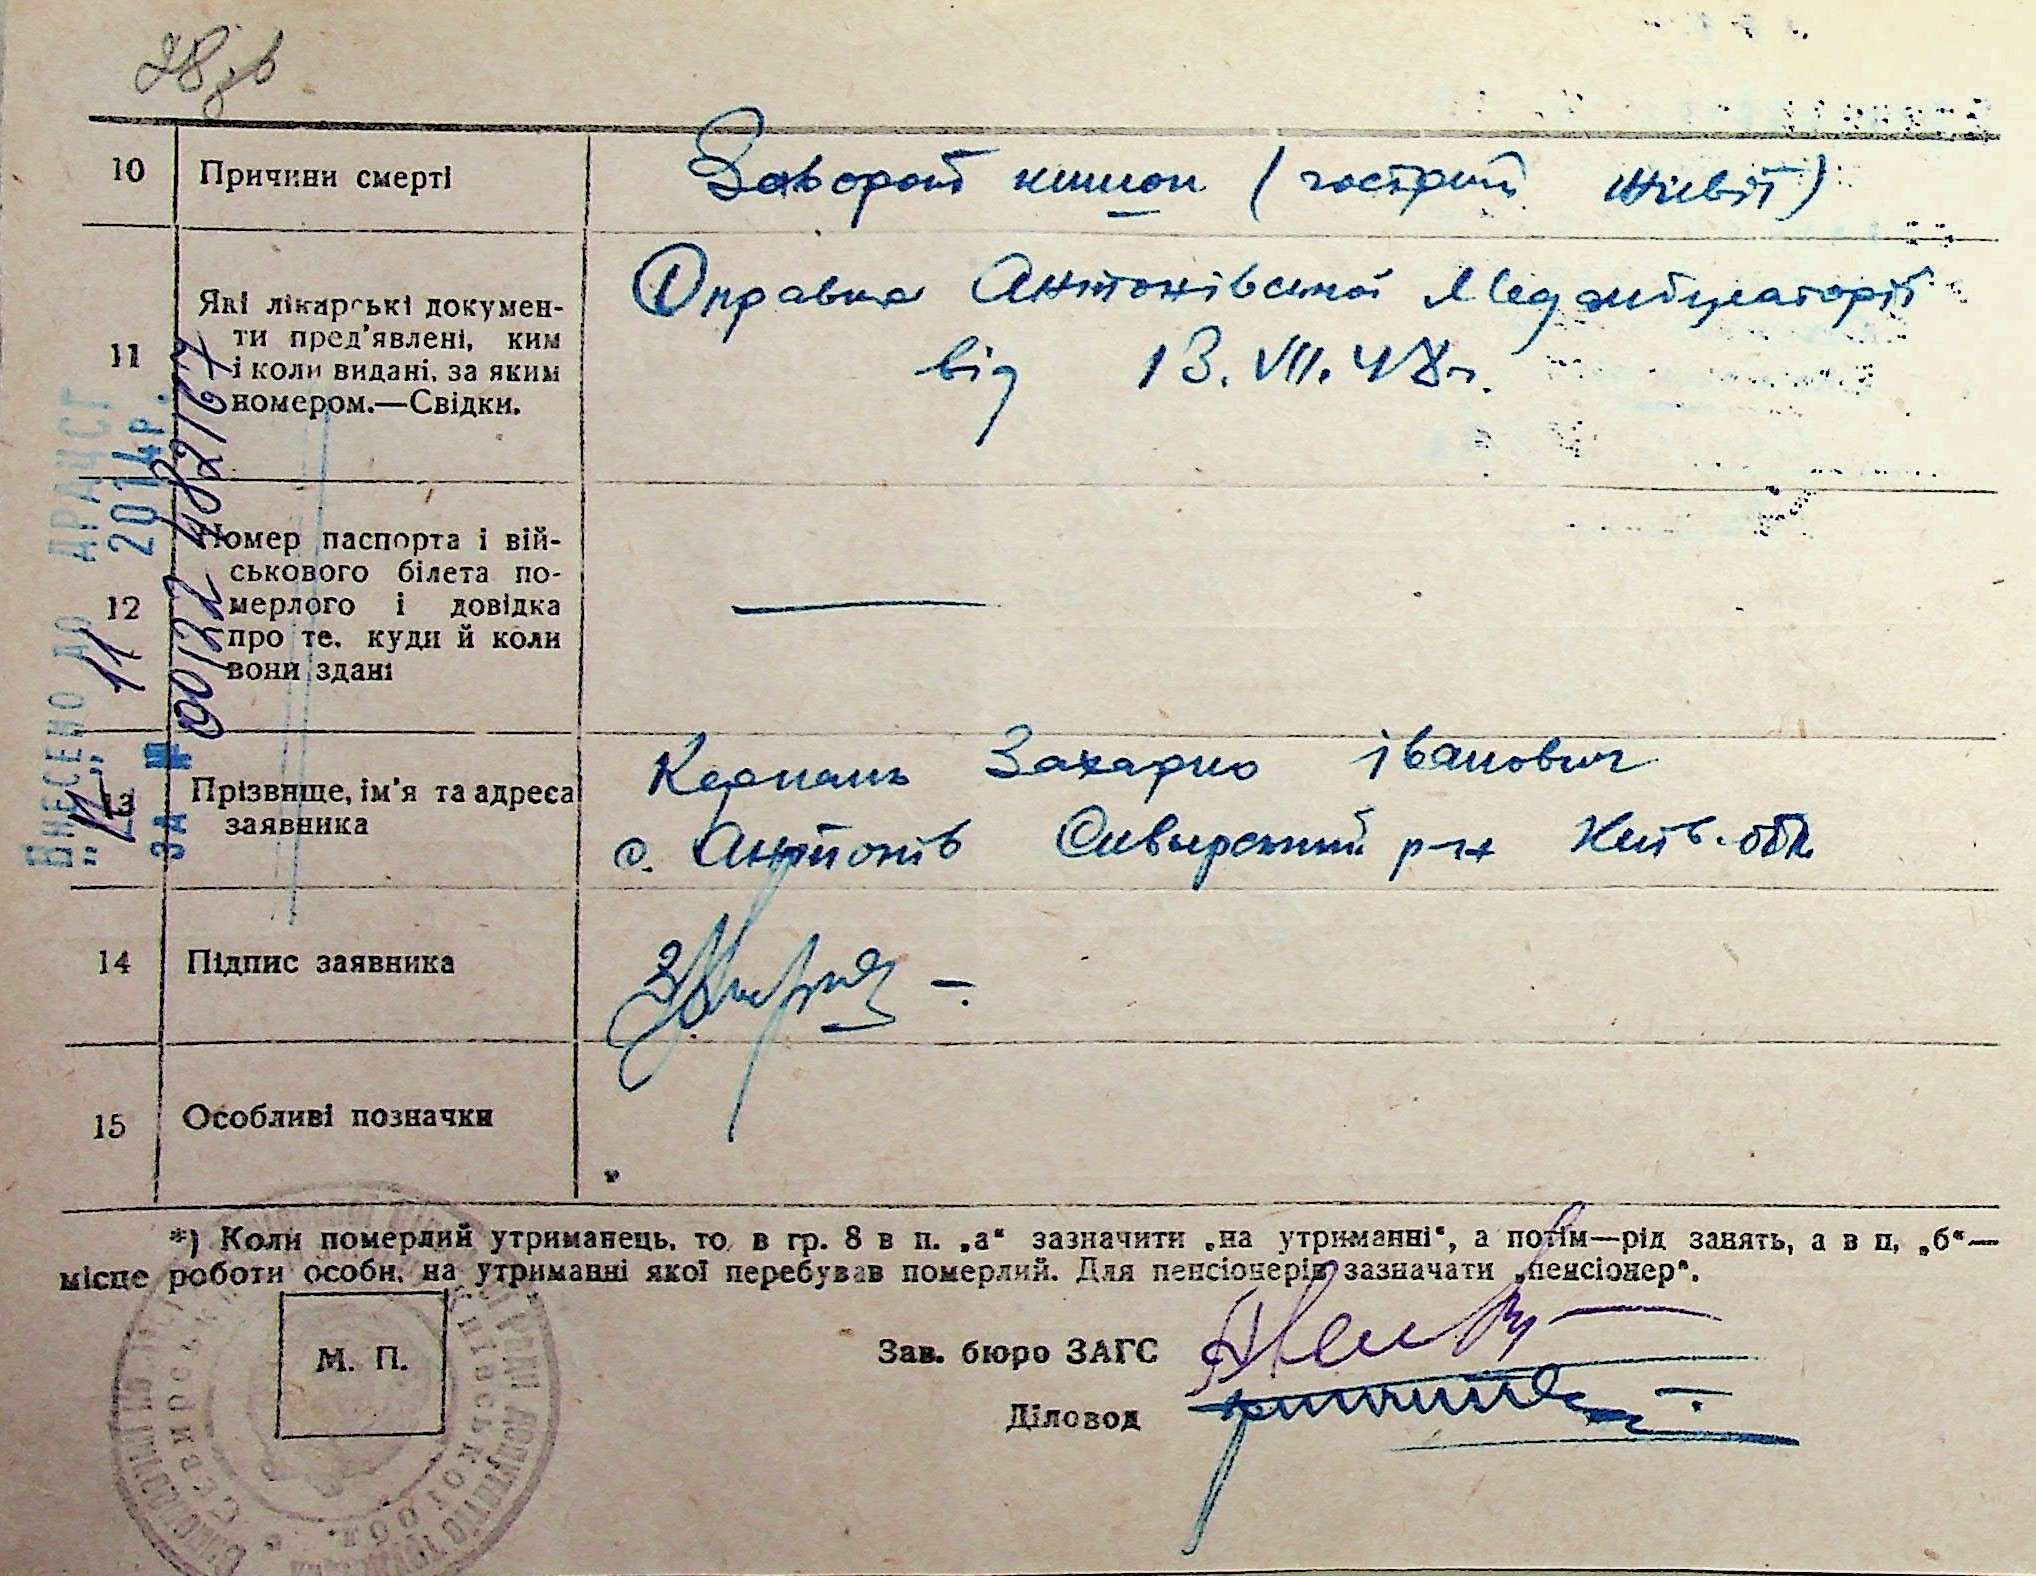 28 зв
10 Причини смерті Заворот кишок (гострий живіт)
11 Які лікарські докумен-
ти пред'явлені, ким
і коли видані, за яким
номером.—Свідки.
Справка Антонівської Медамбулаторії
від 13.VII.48 г.
12 Номер паспорта і вій-
ськового білета по-
мерлого і довідка
про те, куди й коли
вони здані
—
13 Прізвище, ім'я та адреса
заявника
Захарко Іванович
с. Антонів Сквирський р-н Київ. обл.
14 Підпис заявника
15 Особливі позначки
*) Коли померлий утриманець, то в гр. 8 в п. „а“ зазначити „на утриманні“, а потім—рід занять, а в п. „б“—
місце роботи особи, на утриманні якої перебував померлий. Для пенсіонерів зазначати „пенсіонер“.
М. П.
Зав. бюро ЗАГС
Діловод
Внесено до ДРАЦСГ
2014р.
за № 00122482167